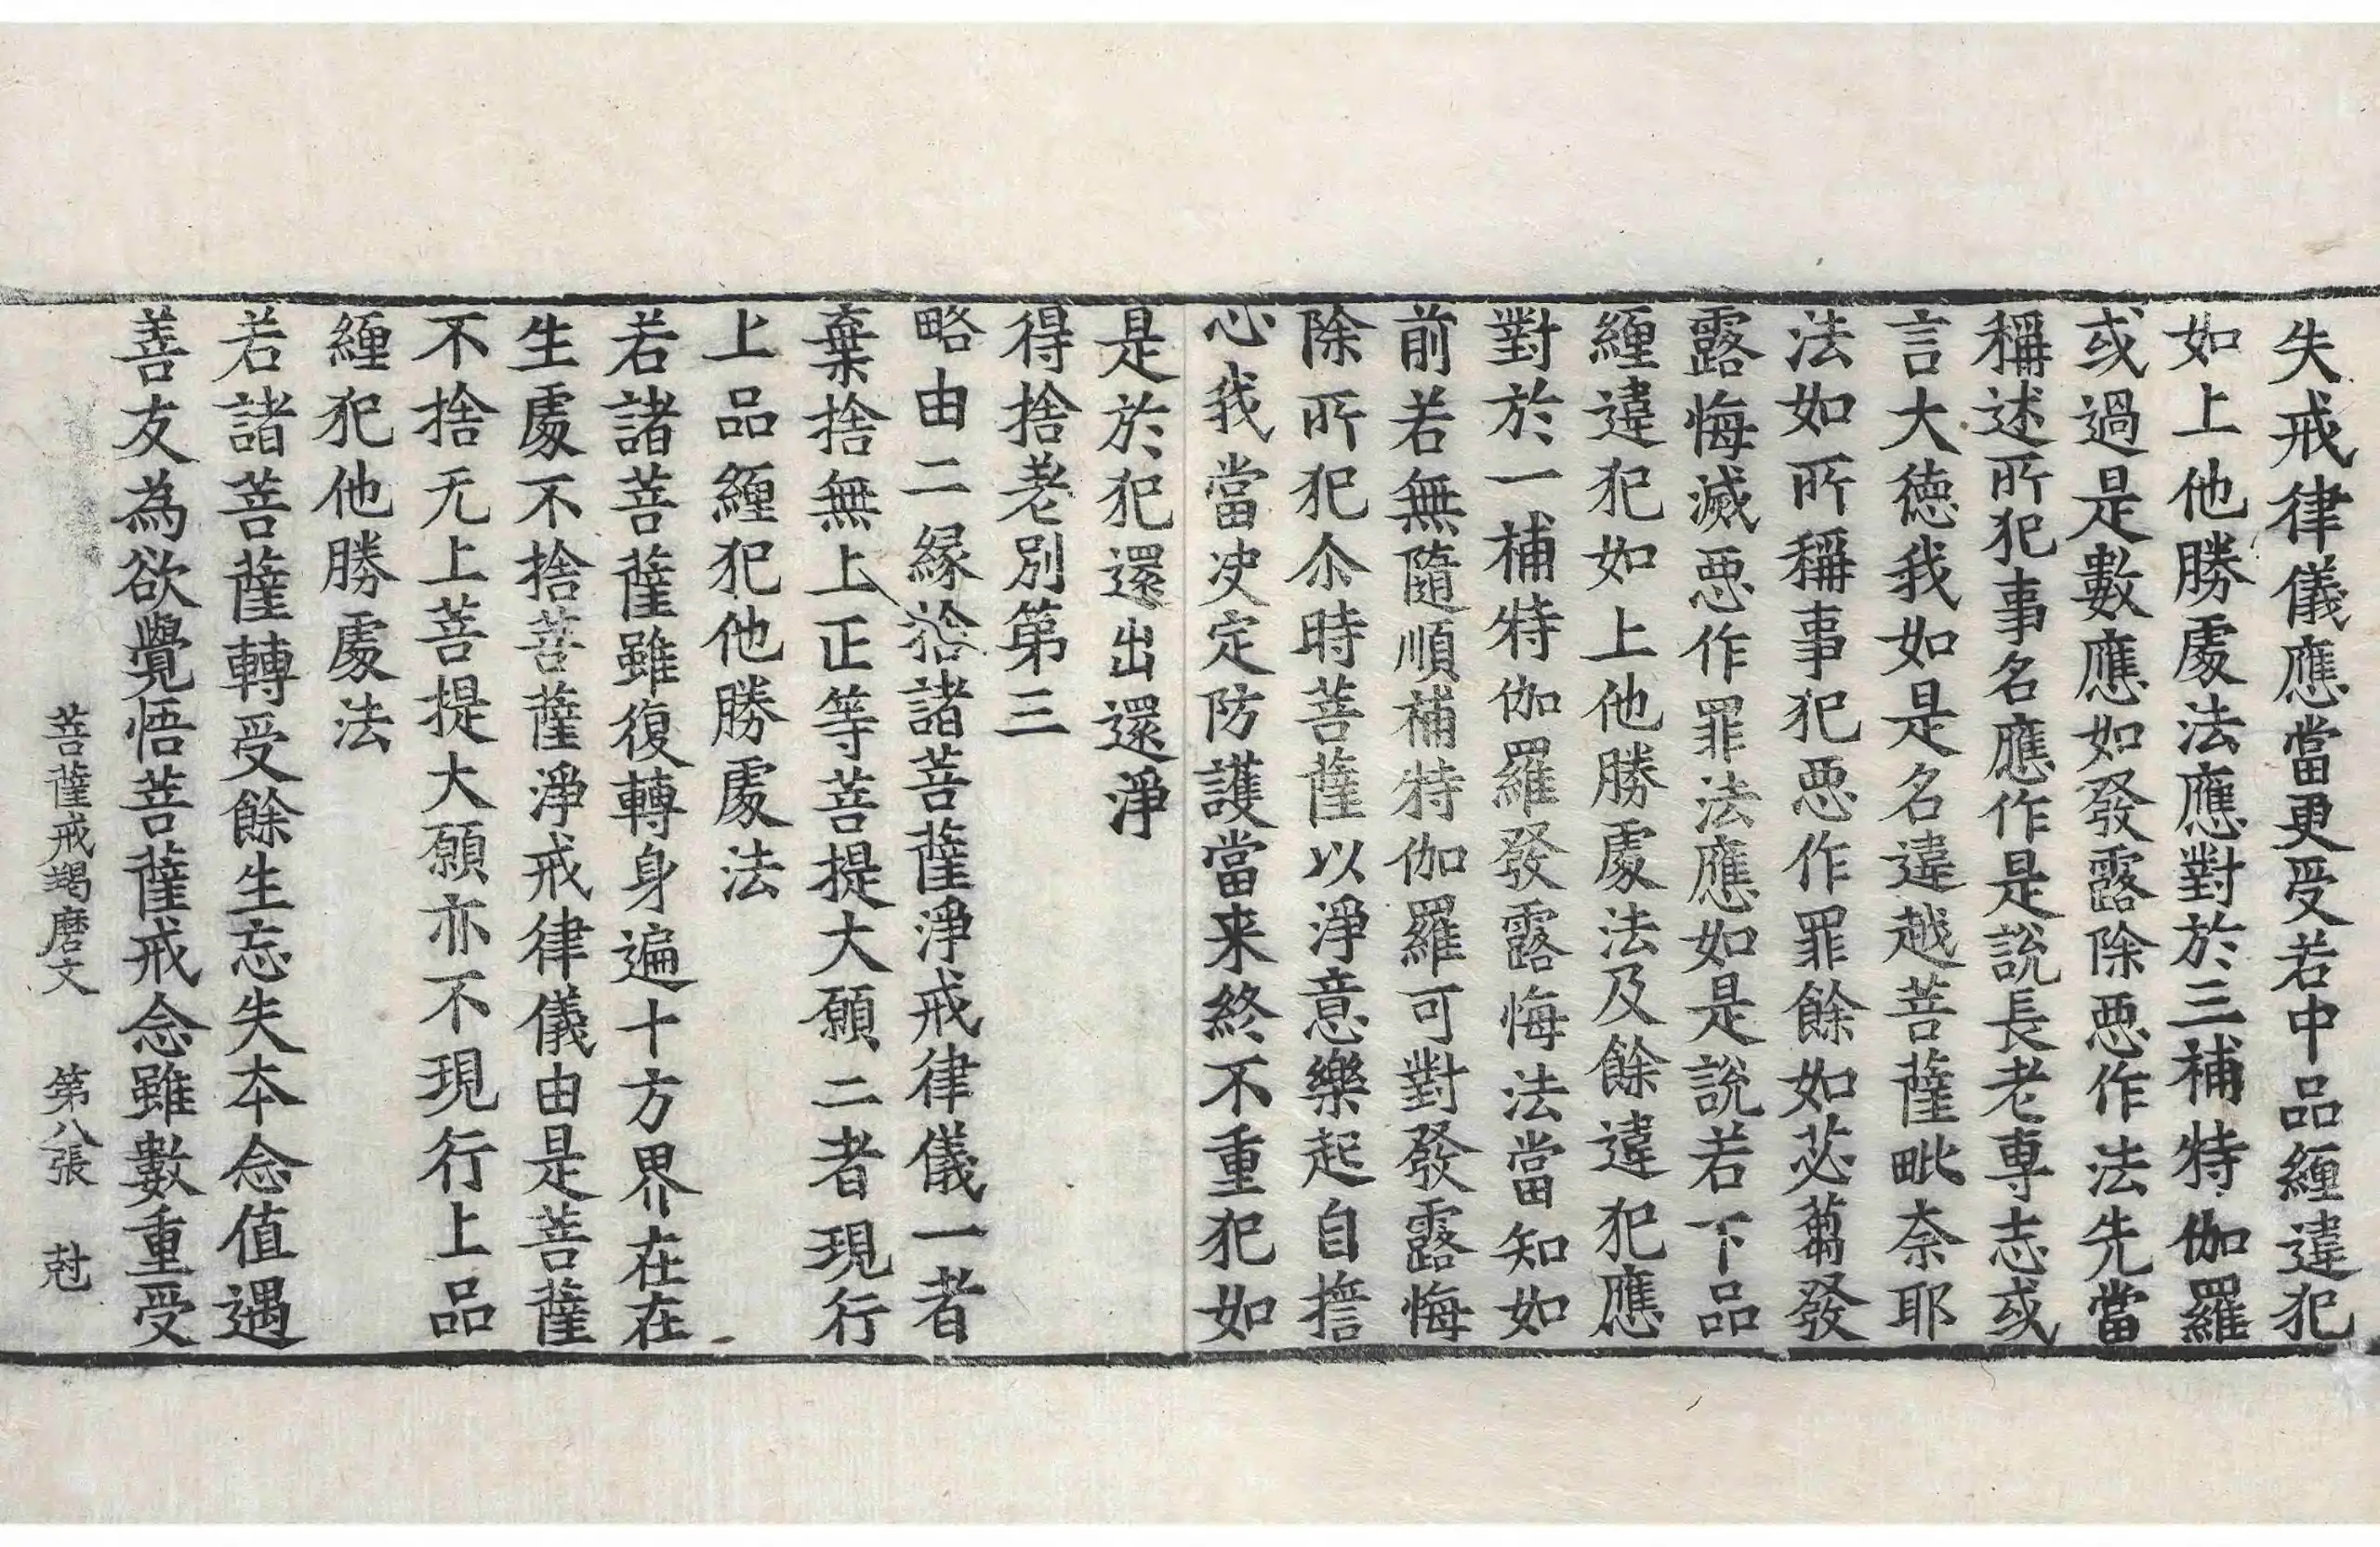 失戒律儀應當更受若中品纏違犯
如上他勝處法應對於三補特伽羅
或過是數應如發露除惡作法先當
稱述所犯事名應作是說長老專志或
言大德我如是名違越菩薩毗奈耶
法如所稱事犯惡作罪餘如苾蒭發
露悔滅惡作罪法應如是說若下品
纏違犯如上他勝處法及餘違犯應
對於一補特伽羅發露悔法當知如
前若無隨順補特伽羅可對發露悔
除所犯尒時菩薩以淨意樂起自擔
心我當决定防護當来終不重犯如
是於犯還出還淨
得捨老別第三
略由二緣捨諸菩薩淨戒律儀一者
棄捨無上正等菩提大願二者現行
上品纏犯他勝處法
若諸菩薩雖復轉身遍十方界在在
生處不捨菩薩淨戒律儀由是菩薩
不捨无上菩提大願亦不現行上品
纏犯他勝處法
若諸菩薩轉受餘生忘失本念值遇
善友為欲覺悟菩薩戒念雖數重受
菩薩戒羯磨文 第八張 尅